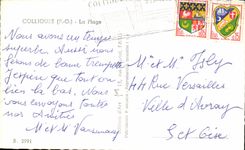 COLLIOURE (P.-O.) - La Plage
Nous avons un temps
superbe. Aussi nous
faisons de bonne trempette
J'espère que tout va
bien là bas. Nous vous
envoyons toutes
nos Amitiés
M et Mme
E. 2791
M et Mme Joly
44 Rue Versailles
Ville d'Avray
S et Oise